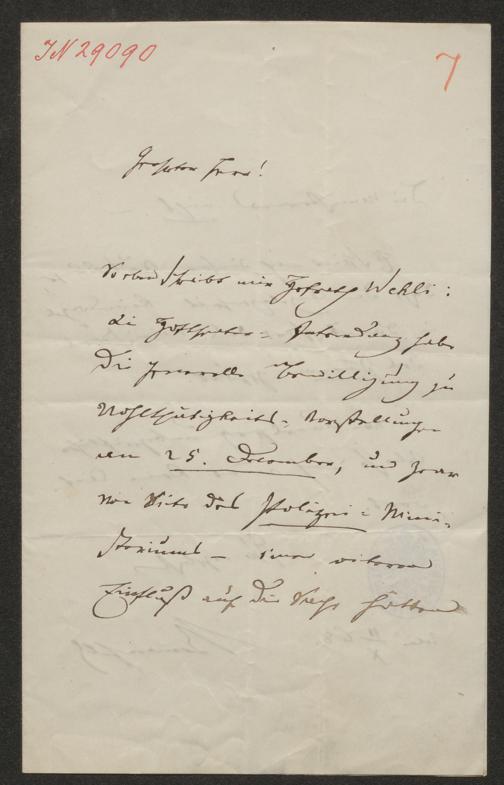 IN 29090
7
Geehrter Herr!
Soeben schreibt mir Hofrath Wehli:
die Hoftheater-Intendanz habe
die generelle Bewilligung zu
Wohlthätigkeits-Vorstellungen
am 25. December, und zwar
von Seite des Polizei-Mini-
steriums – einen weiteren
Einfluß auf die Sache hätten